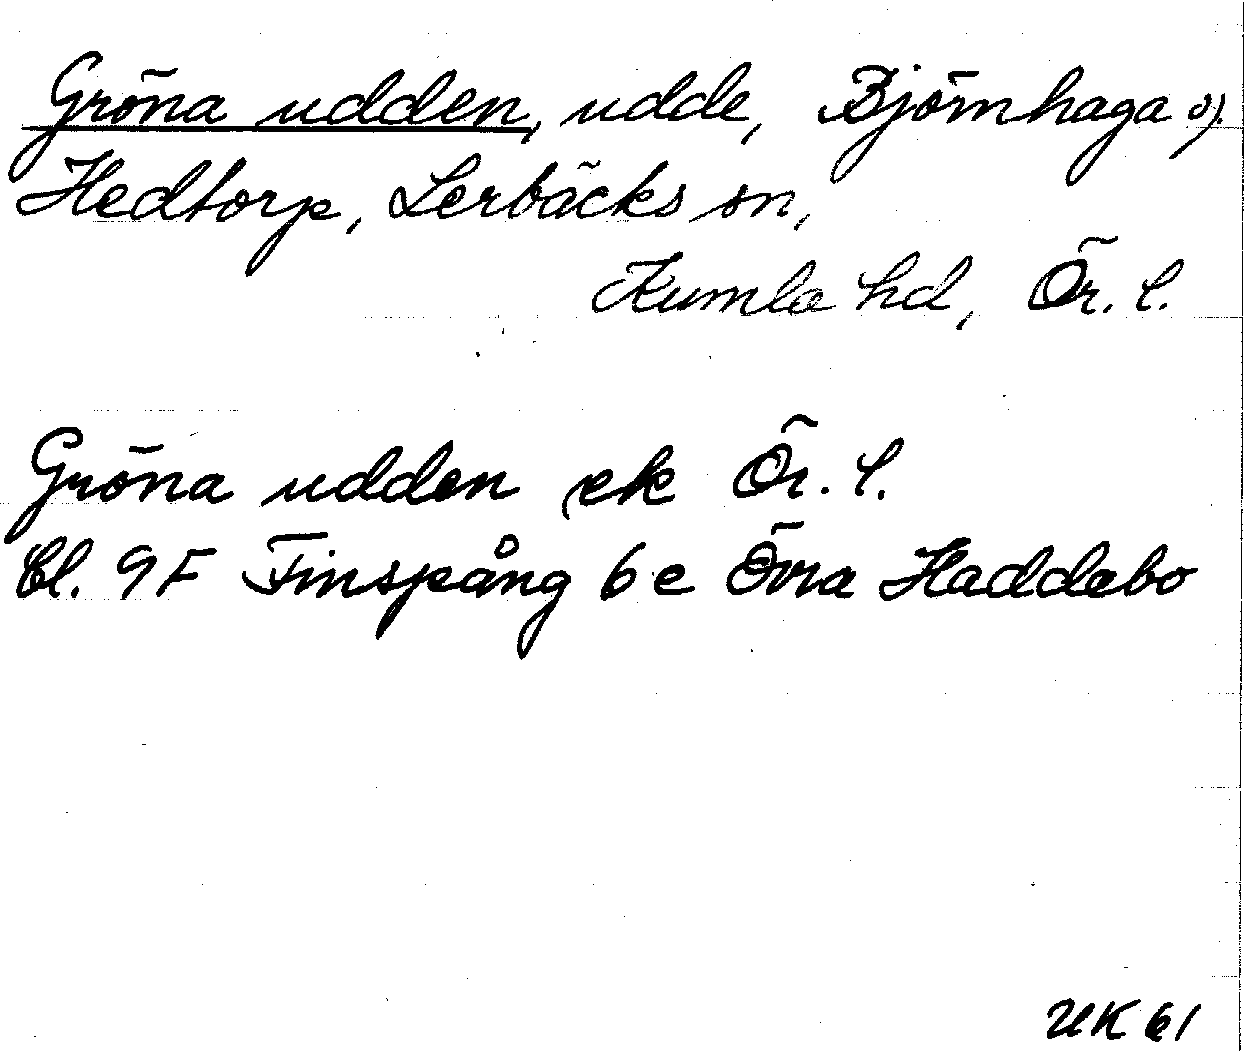 Gröna udden, udde, Björnhaga o).
Hedtorp, Lerbäcks sn,
Kumla hd, Ör. l.
Gröna udden ek Ör. l.
Bl. 9F Finspång 6e Övra Haddebo
UK 61